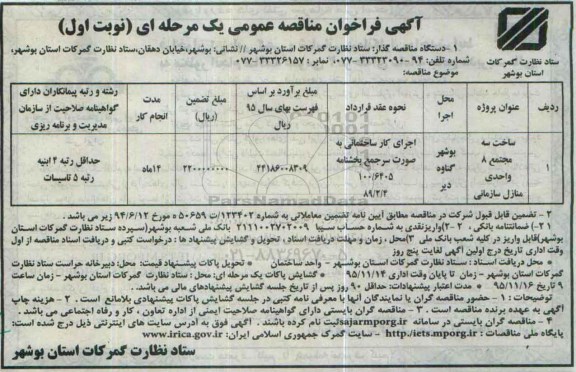 آگهی فراخوان مناقصه عمومی یک مرحله ای (نوبت اول)
ستاد نظارت گمرکات
استان بوشهر
۱ - دستگاه مناقصه گذار: ستاد نظارت گمرکات استان بوشهر // نشانی: بوشهر،خیابان دهقان،ستاد نظارت گمرکات استان بوشهر،
شماره تلفن: ۹۴ -۳۳۳۲۳۰۹۰-۰۷۷، نمابر: ۳۳۳۲۶۱۵۷-۰۷۷
موضوع مناقصه:
ردیف
عنوان پروژه
محل اجرا
نحوه عقد قرارداد
مبلغ برآورد بر اساس فهرست بهای سال ۹۵ ریال
مبلغ تضمین (ریال)
مدت انجام کار
رشته و رتبه پیمانکاران دارای گواهینامه صلاحیت از سازمان مدیریت و برنامه ریزی
۱
ساخت سه مجتمع ۸ واحدی منازل سازمانی
بوشهر گناوه دیر
اجرای کار ساختمانی به صورت سرجمع بخشنامه ۱۰۰/۶۴۰۵ ۸۹/۲/۴
۲۴۱۸۶۰۰۸۳۰۹
۲۲۰۰۰۰۰۰۰۰
۱۴ماه
حداقل رتبه ۴ ابنیه رتبه ۵ تاسیسات
۲ - تضمین قابل قبول شرکت در مناقصه مطابق آیین نامه تضمین معاملاتی به شماره ۱۲۳۴۰۲/ت ۵۰۶۵۹ ه مورخ ۹۴/۶/۱۲ زیر می باشد .
۲-۱) ضمانتنامه بانکی ، ۲-۲)واریزنقدی به شماره حساب سیبا ۲۱۱۱۰۰۲۷۰۲۰۰۹ بانک ملی شعبه بوشهر(سپرده ستاد نظارت گمرکات استان
بوشهر)قابل واریز در کلیه شعب بانک ملی ۳)محل ، زمان و مهلت دریافت اسناد ، تحویل و گشایش پیشنهاد ها : درخواست کتبی و دریافت اسناد مناقصه از اول
وقت اداری تاریخ درج اولین آگهی لغایت پنج روز
* محل دریافت اسناد : ستاد نظارت گمرکات استان بوشهر - واحد ساختمان * تحویل پاکات پیشنهاد قیمت: محل: دبیرخانه حراست ستاد نظارت
گمرکات استان بوشهر – زمان تا پایان وقت اداری ۹۵/۱۱/۱۴ * گشایش پاکات یک مرحله ای: محل : ستاد نظارت گمرکات استان بوشهر - زمان ساعت
۹ تاریخ ۹۵/۱۱/۱۶ * مدت اعتبار پیشنهادات: حداقل ۹۰ روز پس از تاریخ جلسه گشایش پیشنهادهای مالی می باشد .
توضیحات : ۱ - حضور مناقصه گران یا نمایندگان آنها با معرفی نامه کتبی در جلسه گشایش پاکات پیشنهادی بلامانع است . ۲ - هزینه چاپ
آگهی به عهده برنده مناقصه است . ۳ - مناقصه گران بایستی دارای گواهینامه صلاحیت ایمنی از اداره تعاون ، کار و رفاه اجتماعی می باشد .
۴ - مناقصه گران بایستی در سامانه sajarmporg.ir ثبت نام کرده باشند . آگهی فوق به آدرس سایت های اینترنتی ذیل درج شده است:
پایگاه ملی مناقصات : http//iets.mporg.ir سایت گمرک جمهوری اسلامی ایران: www.irica.gov.ir
ستاد نظارت گمرکات استان بوشهر
ParsNamadData